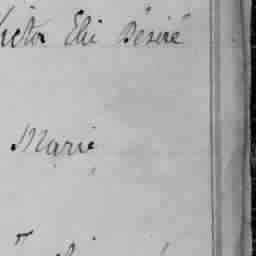 Victor Elie Désiré
Marie